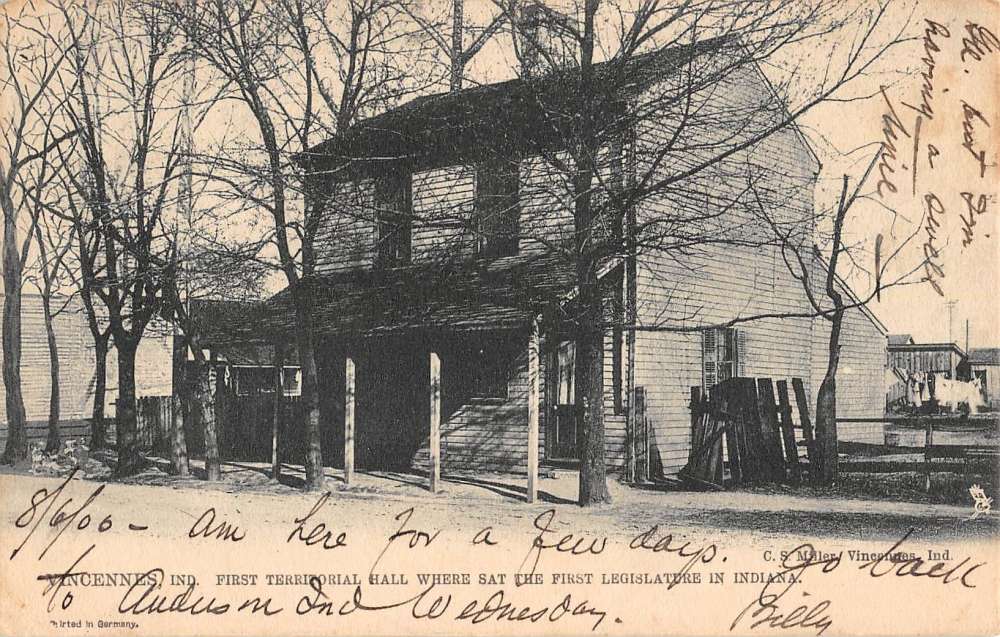 8/6/06 - am here for a few days. Go back
to Anderson Ind Wednesday.
Billy
having a swell
time
C. S. Miller, Vincennes, Ind.
VINCENNES, IND. FIRST TERRITORIAL HALL WHERE SAT THE FIRST LEGISLATURE IN INDIANA.
Printed in Germany.